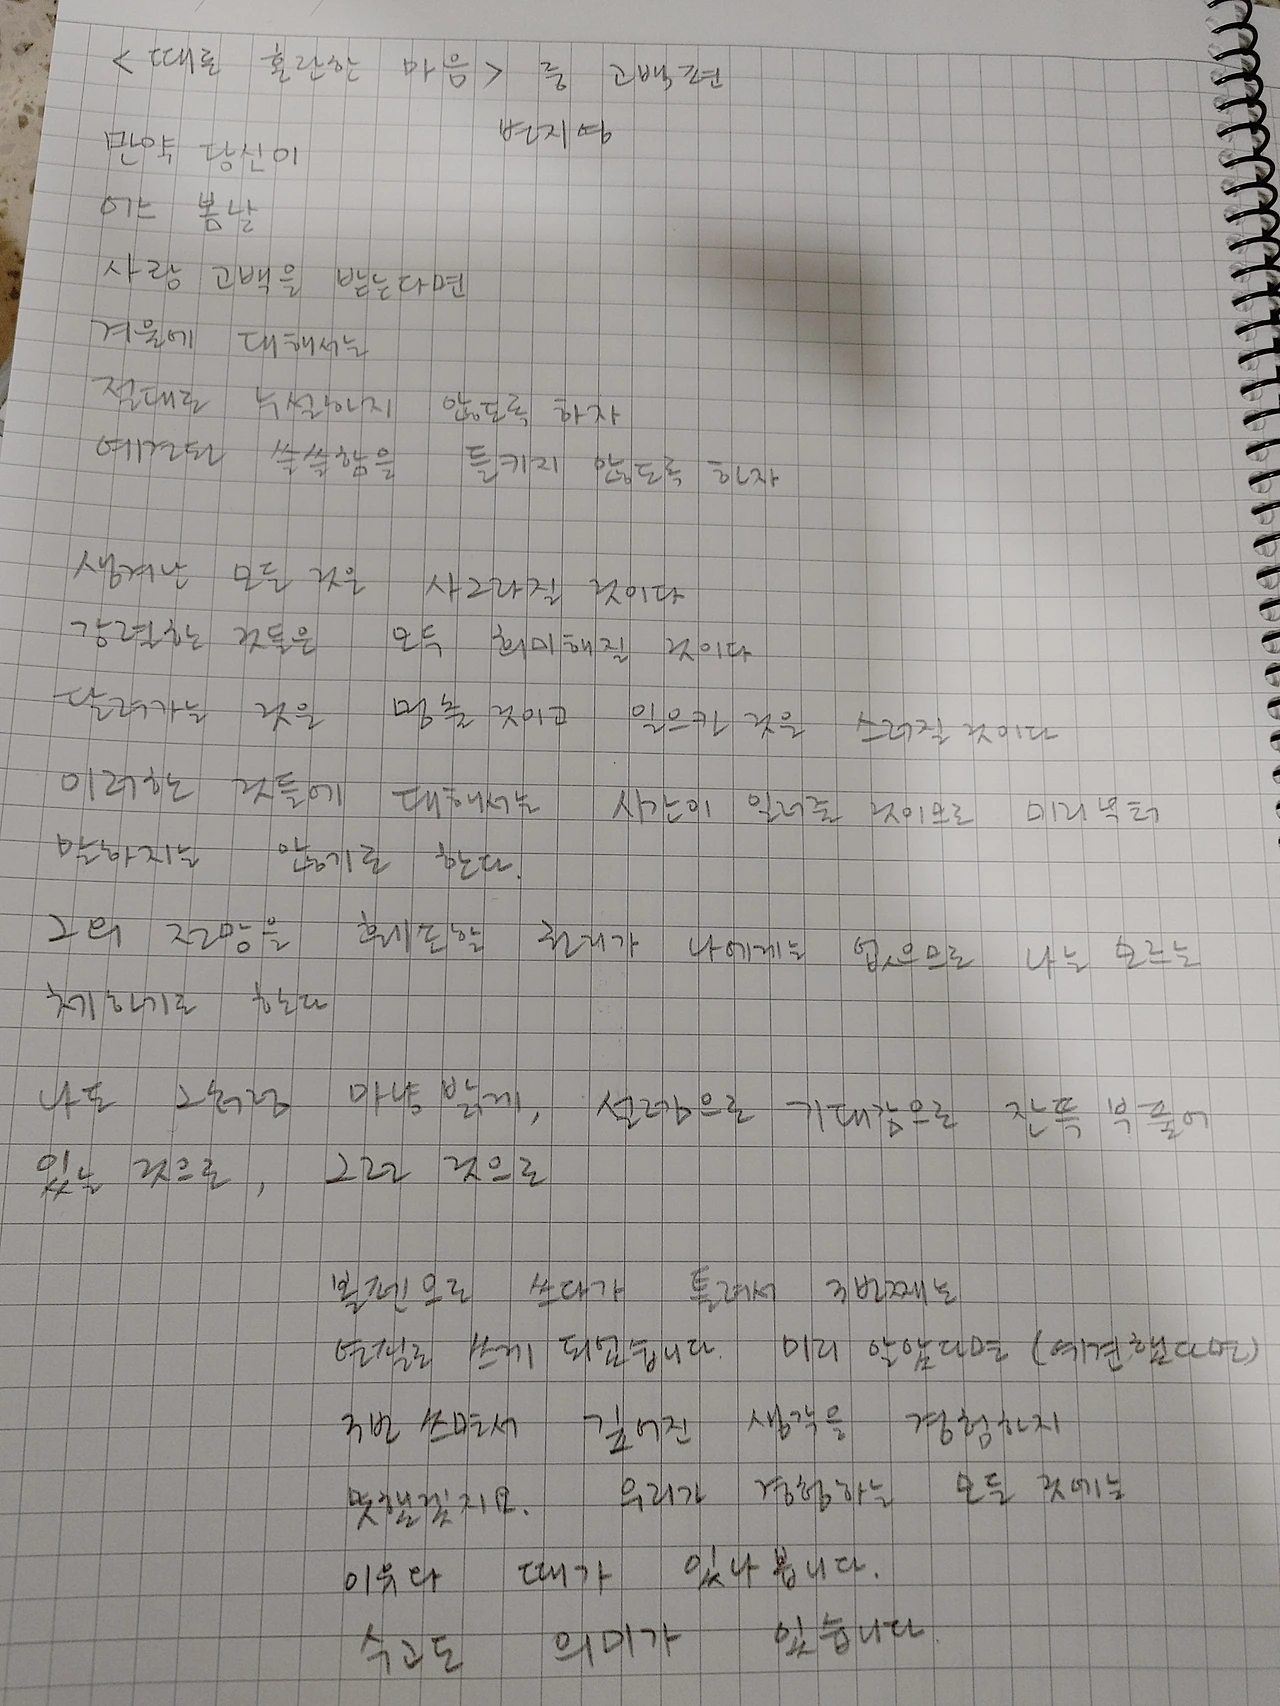 <때로 혼란한 마음> 중 고백편
변지영
만약 당신이
어느 봄날
사랑 고백을 받는다면
겨울에 대해서는
절대로 누설하지 않도록 하자
예견된 쓸쓸함을 들키지 않도록 하자
생겨난 모든 것은 사그라질 것이다
강렬한 것들은 모두 희미해질 것이다
달려가는 것은 멈출 것이고 일으킨 것은 스러질 것이다
이러한 것들에 대해서는 시간이 일러줄 것이므로 미리부터
말하지는 않기로 한다.
그의 전망을 훼손할 권리가 나에게는 없으므로 나는 모르는
체하기로 한다
나도 그처럼 마냥 밝게, 설레임으로 기대감으로 잔뜩 부풀어
있는 것으로, 그런 것으로
볼펜으로 쓰다가 틀려서 3번째는
연필로 쓰게 되었습니다. 미리 알았다면 (예견했다면)
3번 쓰면서 깊어진 생각을 경험하지
못했겠지요. 우리가 경험하는 모든 것에는
이유와 때가 있나 봅니다.
수고도 의미가 있습니다.